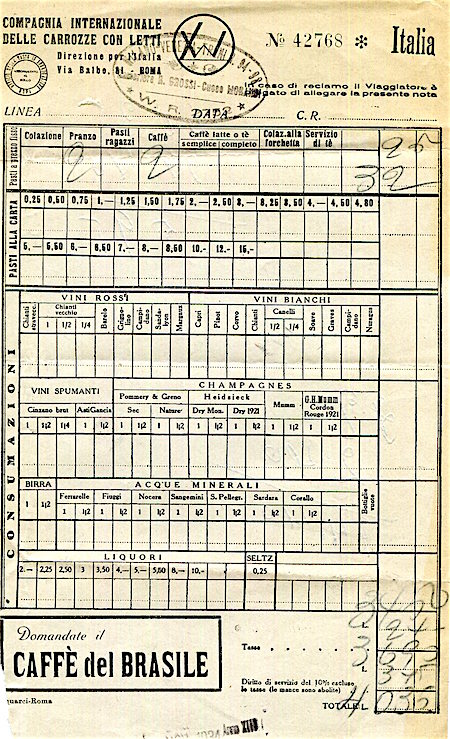 COMPAGNIA INTERNAZIONALE
DELLE CARROZZE CON LETTI
Direzione per l'Italia
Via Balbo, 81 - ROMA
XI
№ 42768 ✻ Italia
In caso di reclamo il Viaggiatore è
pregato di allegare la presente nota
LINEA
DATA
C. R.
W. R.
Pasti a prezzo fisso
Colazione Pranzo Pasti ragazzi Caffè Caffè latte o tè semplice completo Colaz. alla forchetta Servizio di tè
2 2
32
PASTI ALLA CARTA
0,25 0,50 0,75 1,— 1,25 1,50 1,75 2,— 2,50 3,— 3,25 3,50 4,— 4,50 4,80
5,— 5,50 6,— 6,50 7,— 8,— 8,50 10,— 12,— 15,—
CONSUMAZIONI
VINI ROSSI VINI BIANCHI
Chianti stravecc. Chianti vecchio 1 1/2 1/4 Barolo Grignolino Campidano Sandalyon Margaux Capri Pinot Corvo Chianti Canelli 1 1/2 Soave Graves Campidano Nuragus
VINI SPUMANTI CHAMPAGNES
Pommery & Greno Heidsieck Mumm G.H. Mumm Cordon Rouge 1921
Cinzano brut Asti Gancia Sec Nature Dry Mon. Dry 1921
1 1|2 1|4 1 1|2 1 1|2 1 1|2 1 1|2 1 1|2 1 1|2 1 1|2
BIRRA ACQUE MINERALI
1 1|2
Ferrarelle Fiuggi Nocera Sangemini S. Pellegr. Sardara Corallo
1 1|2 1 1|2 1 1|2 1 1|2 1 1|2 1 1|2 1 1|2
Bottiglie vuote
LIQUORI SELTZ
2.— 2,25 2,50 3 3,50 4,— 5,— 5,50 8,— 10,— 0,25
Domandate il
CAFFÈ del BRASILE
Tassa
Diritto di servizio del 10% escluse
le tasse (le mance sono abolite)
TOTALE L.
quarci-Roma
1934 Anno XIII